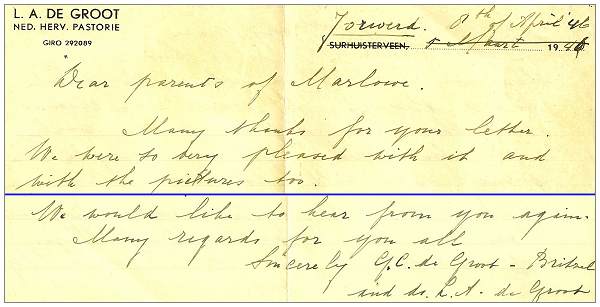 L. A. DE GROOT
NED. HERV. PASTORIE
GIRO 292089
Jorwerd. 8th of April '46
SURHUISTERVEEN, Maart 194
Dear parents of Marlowe.
Many thanks for your letter.
We were so very pleased with it and
with the pictures too.
We would like to hear from you again.
Many regards for you all
Sincerely G.C. de Groot - Britzel
and ds. L. A. de Groot